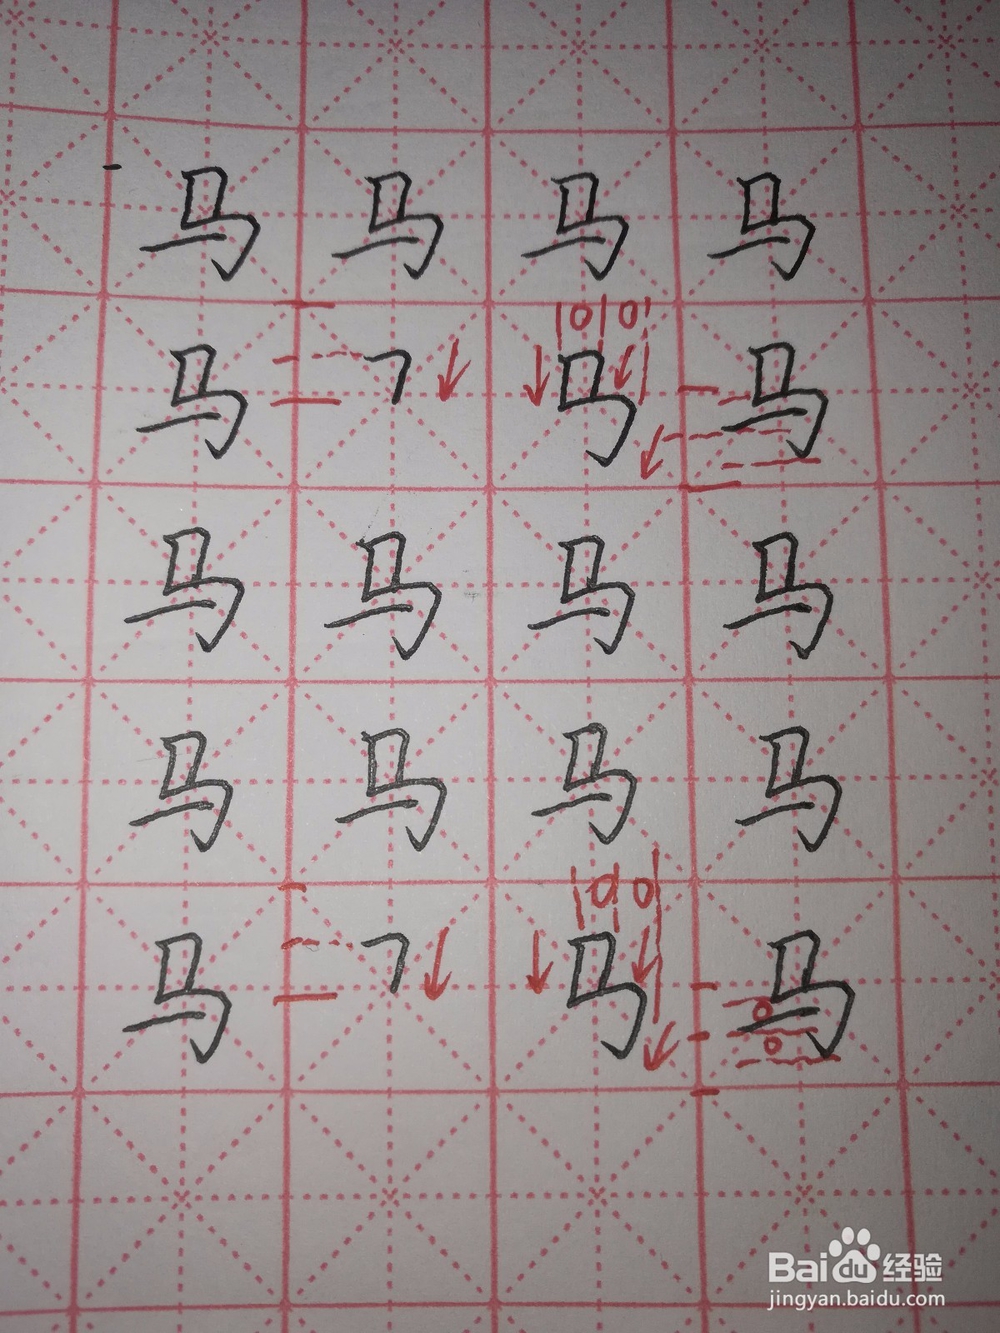 马 马 马 马
马 ㇕ 马 马
马 马 马 马
马 马 马 马
马 ㇕ 马 马
Baidu 经验
jingyan.baidu.com